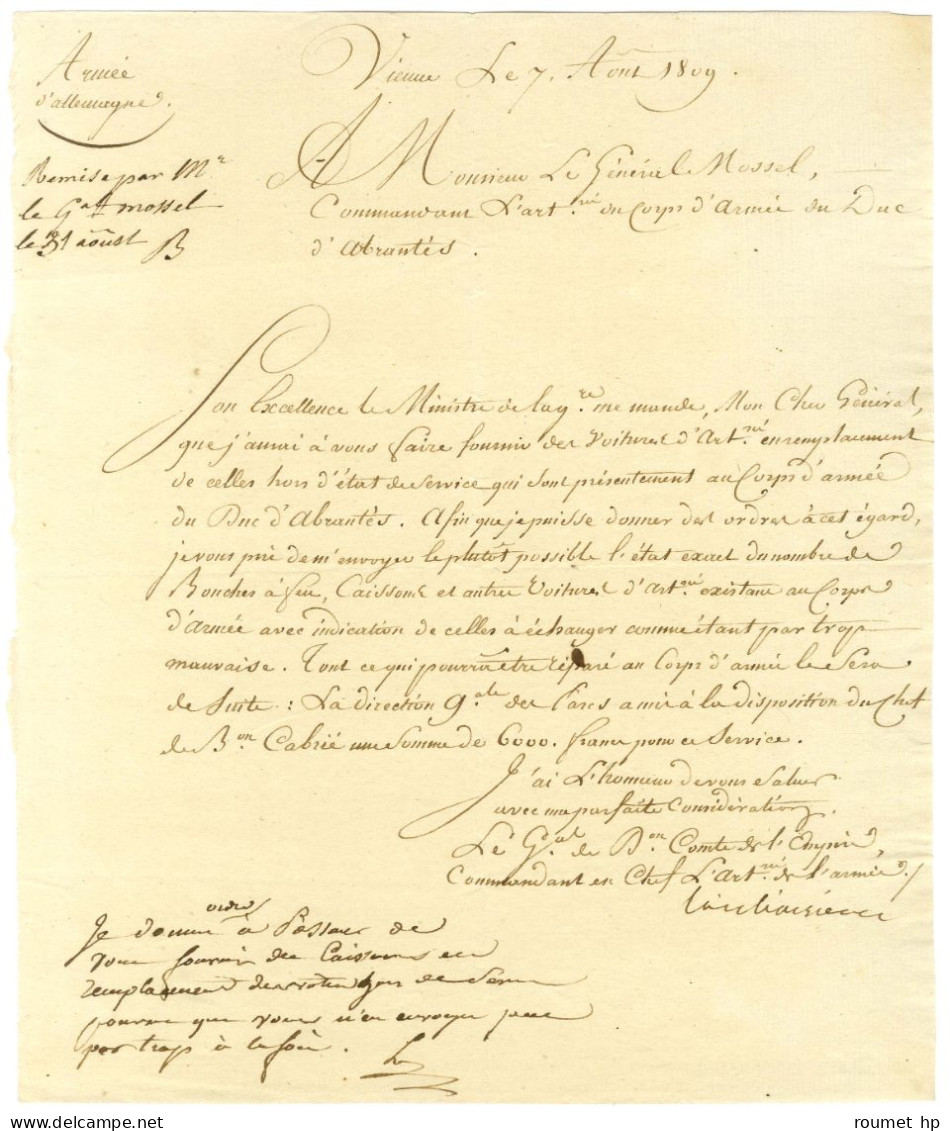 Armée
d'allemagne.
Vienne Le 7. Août 1809.
Remise par Mr
le Gal mossel
le 31 aoust B
A Monsieur Le Général Mossel,
Commandant L'artrie du Corps d'Armée du Duc
d'Abrantés.
Son Excellence le Ministre de la gre me mande, Mon Cher Général,
que j'aurai à vous faire fournir des Voitures d'Artrie en remplacement
de celles hors d'état de Service qui sont présentement au Corps d'armée
du Duc d'Abrantés. Afin que je puisse donner des ordres à cet égard,
je vous prie de m'envoyer le plutôt possible l'état exact du nombre de
Bouches à feu, Caissons et autres Voitures d'Artrie existant au Corps
d'Armée avec indication de celles à échanger comme étant par trop
mauvaise. Tout ce qui pourra être réparé au Corps d'armée le Sera
de Suite : La direction gale des Parcs a mis à la disposition du Chef
de Bon Cabrié une Somme de 6000. francs pour ce Service.
J'ai L'honneur de vous Saluer
avec ma parfaite Considération,
Le Gal de Don Comte de l'Empire,
Commandant en Chef L'artrie de l'armée /
Lariboisiere
Je donne ordre à Passau de
vous fournir des Caissons en
remplacement des votres hors de Service
pourvu que vous n'en envoyez pas
par trop à la fois.
L
roumet hp